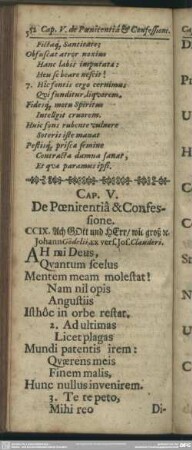 Cap. V. de Pœnitentiâ & Confessione.
Fictaq́, Sanctitate;
Obfuscat atror noxius
Hanc labis imputata:
Heu se beare nescit!
7. Hic fontis ergo cernimus
Qvi funditur, liqvorem,
Fideiq́, motu Spiritus
Intelligit cruorem.
Huic fons rubente vulnere
Soteris iste manat
Pestisq́, prisca semine
Contracta damna sanat,
Et qvæ paramus ipsi.
CAP. V.
De Pœnitentiâ & Confes-
sione.
CCIX. Ach GOtt und HErr/ wie groß ꝛc.
Johann Gödelii, ex vers. Jos. Clauderi.
AH mi Deus,
Qvantum scelus
Mentem meam molestat!
Nam nil opis
Angustiis
Isthôc in orbe restat.
2. Ad ultimas
Licet plagas
Mundi patentis irem:
Qværens meis
Finem malis,
Hunc nullus invenirem.
3. Te repeto,
Mihi reo
Di-